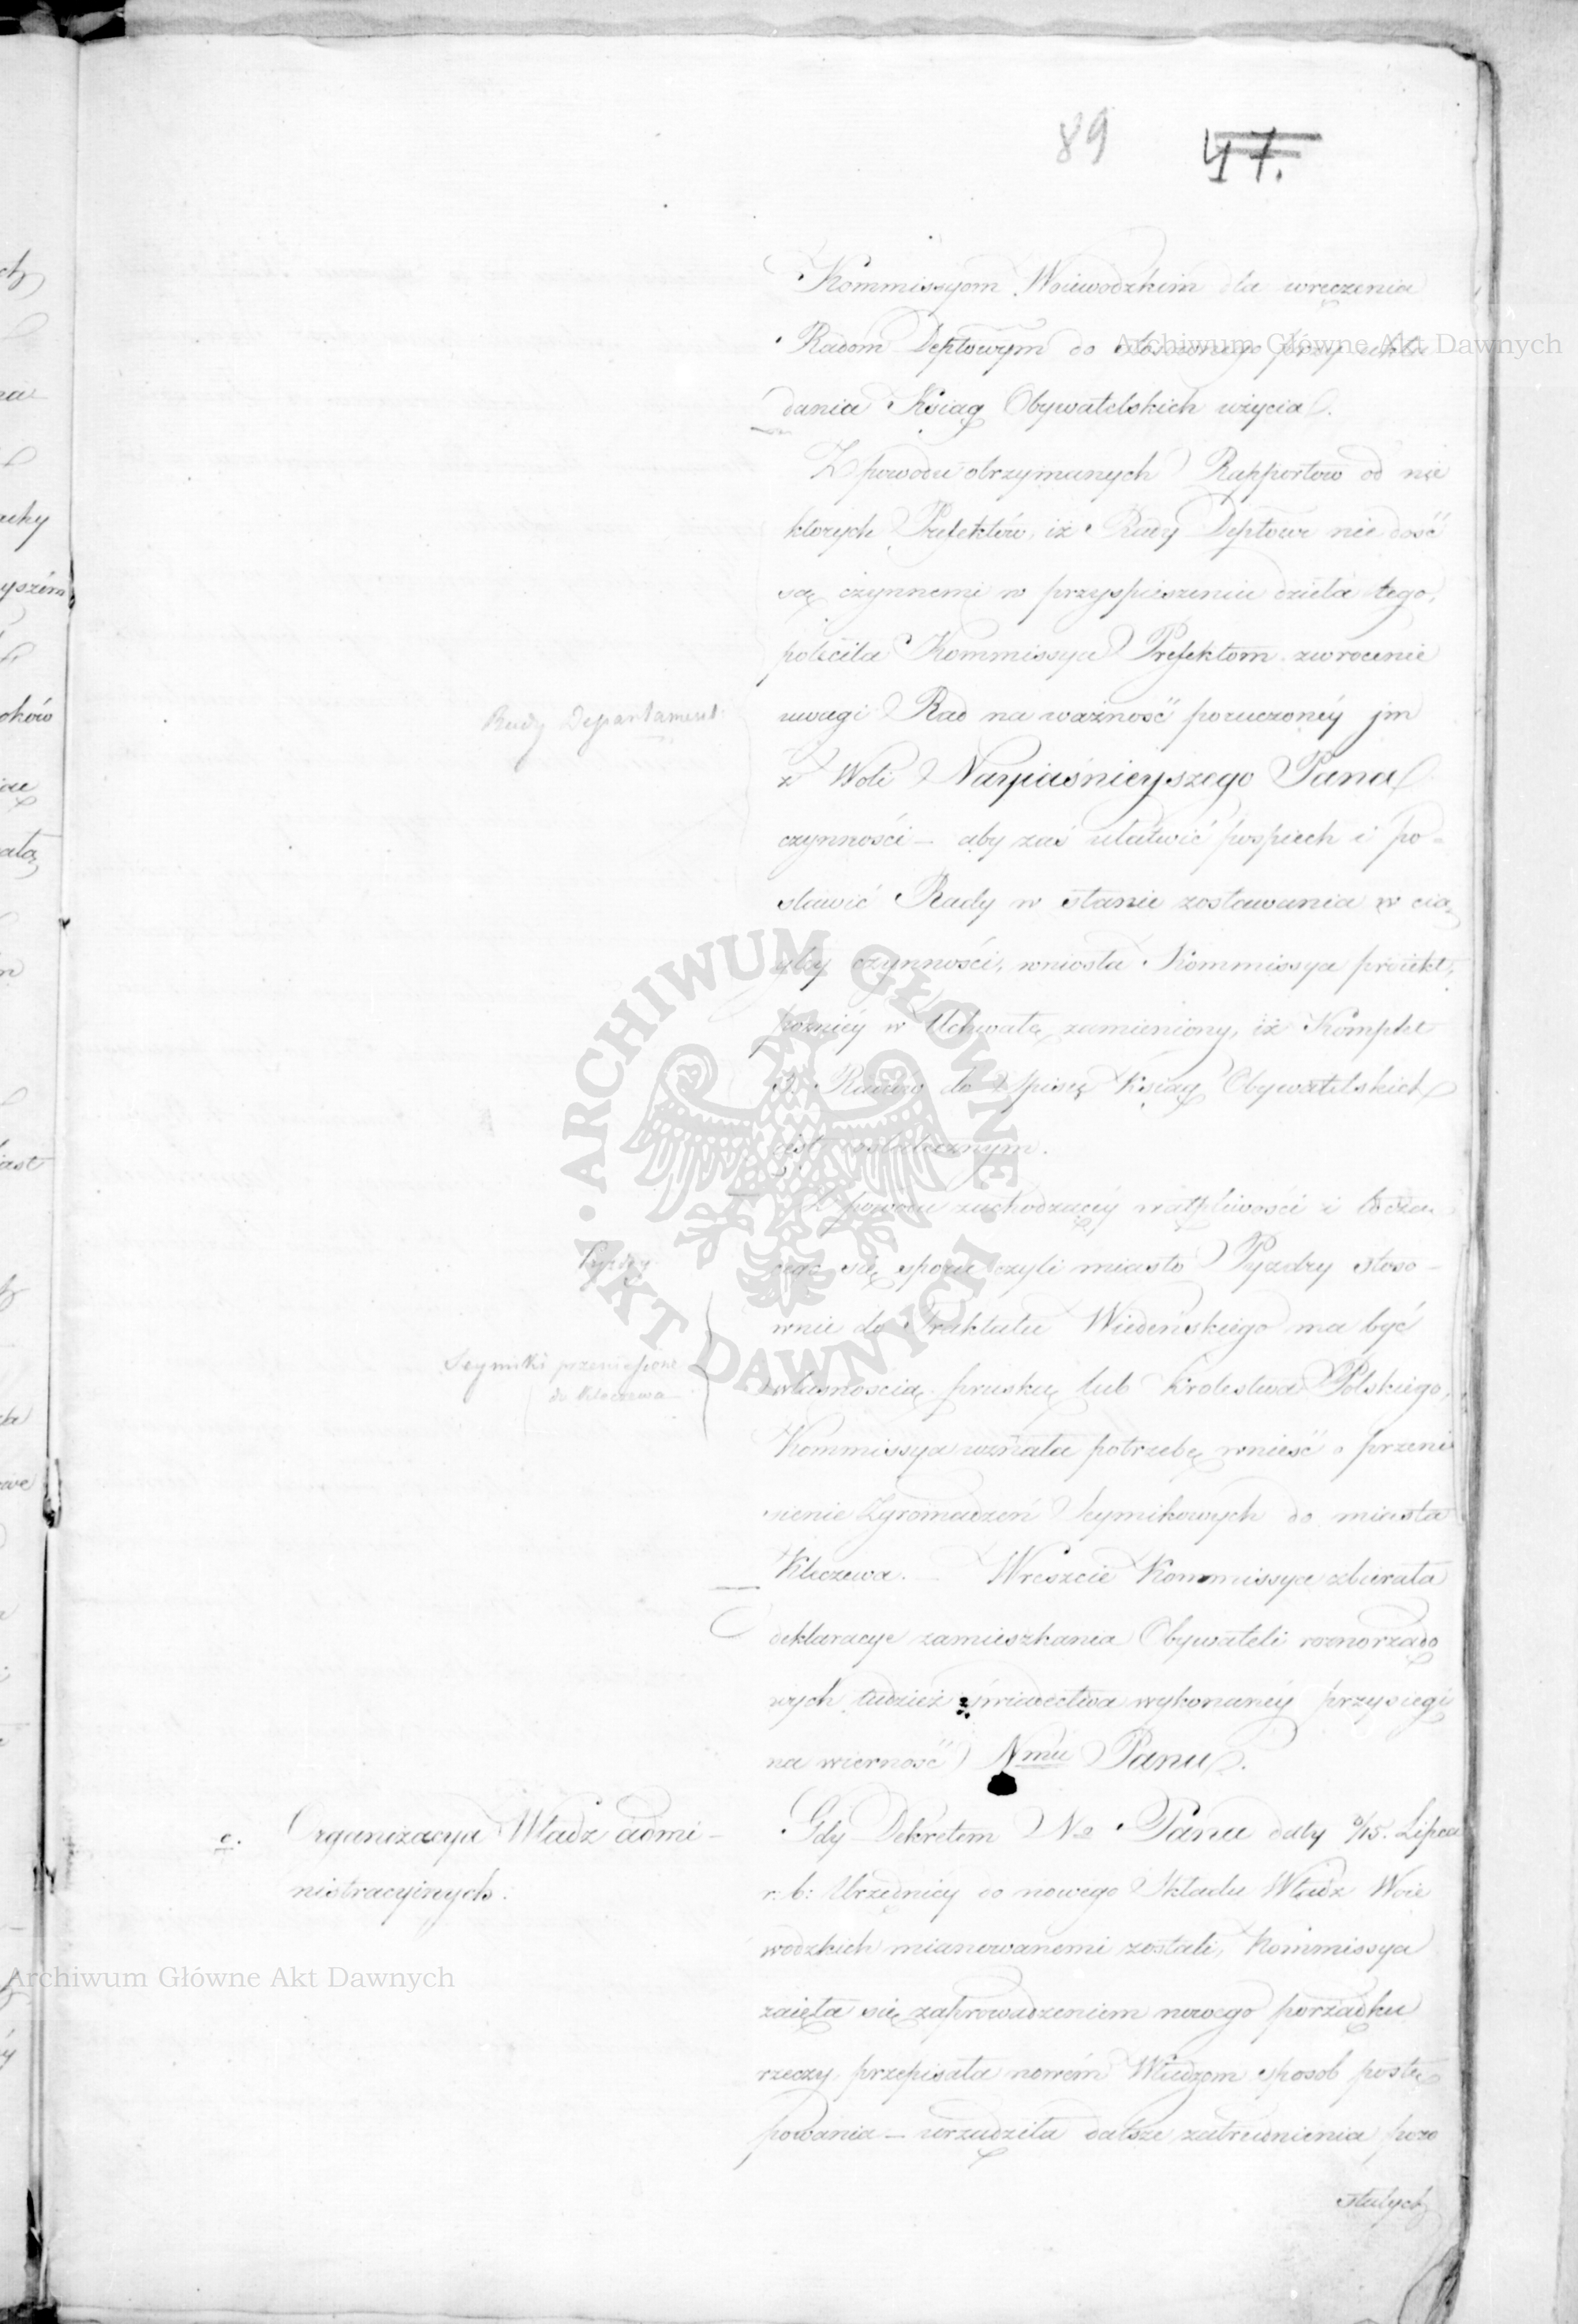 89
47.
Kommissyom Woiewodzkim dla wręczenia
Radom Deptowym do stosownego przy ukła
dania Ksiąg Obywatelskich użycia.
Z powodu otrzymanych Rapportow od nie
ktorych Prefektów, iż Rady Deptowe nie dość
są czynnemi w przyspieszeniu dzieła tego,
poleciła Kommissya Prefektom zwrocenie
Rady Departament:
uwagi Rad na ważność poruczonéy jm
z Woli Nayiaśnieyszego Pana
czynności – aby zaś ułatwić pospiech i po-
stawić Rady w stanie zostawania w cią
głéy czynności, wniosła Kommissya proiekt,
poźniéy w Uchwałę zamieniony, iż Komplet
Radców do Spisu Ksiąg Obywatelskich
iest ostatecznym.
Z powodu zachodzącéy wątpliwości i
Pyzdry
cego się sporu czyli miasto Pyzdry stoso-
wnie do Traktatu Wiedeńskiego ma być
Seymiki przeniesione
do Kleczewa
własnością pruską lub Krolestwa Polskiego,
Kommissya uznała potrzebę wnieść o przeni
sienie Zgromadzeń Seymikowych do miasta
Kleczewa. – Wreszcie Kommissya zbierała
deklaracye zamieszkania Obywateli roznorządo
wych tudzież świadectwa wykonanéy przysięgi
na wierność Nmu Panu.
c. Organizacya Władz admi-
nistracyinych.
Gdy Dekretem No Pana daty /15. Lipca
r. b: Urzędnicy do nowego Składu Władz Woie
wodzkich mianowanemi zostali, Kommissya
zaięła się zaprowadzeniem nowego porządku
rzeczy, przepisała nowém Władzom sposob postę
powania – urządziła dalsze zatrudnienia pozo
stałych
Archiwum Główne Akt Dawnych
Archiwum Główne Akt Dawnych
ARCHIWUM GŁÓWNE · AKT DAWNYCH ·